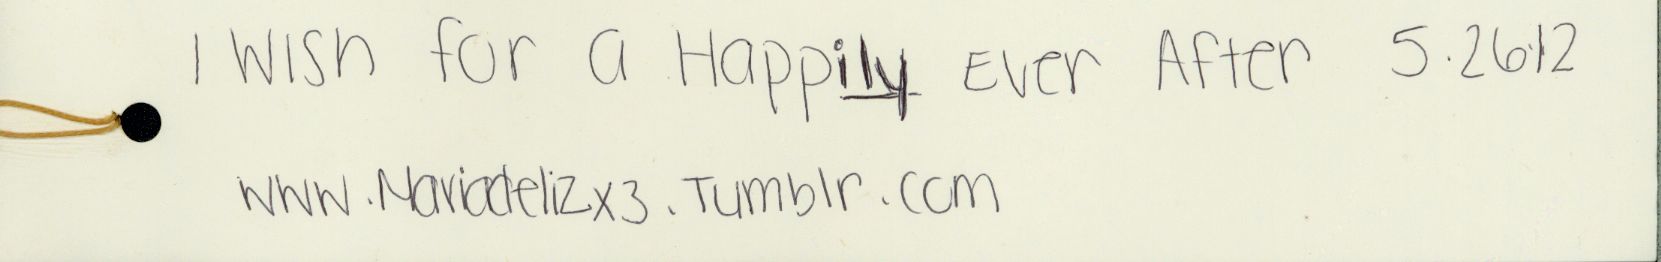 I Wish for a Happily Ever After 5.26.12
www.Mariadelizx3.Tumblr.com